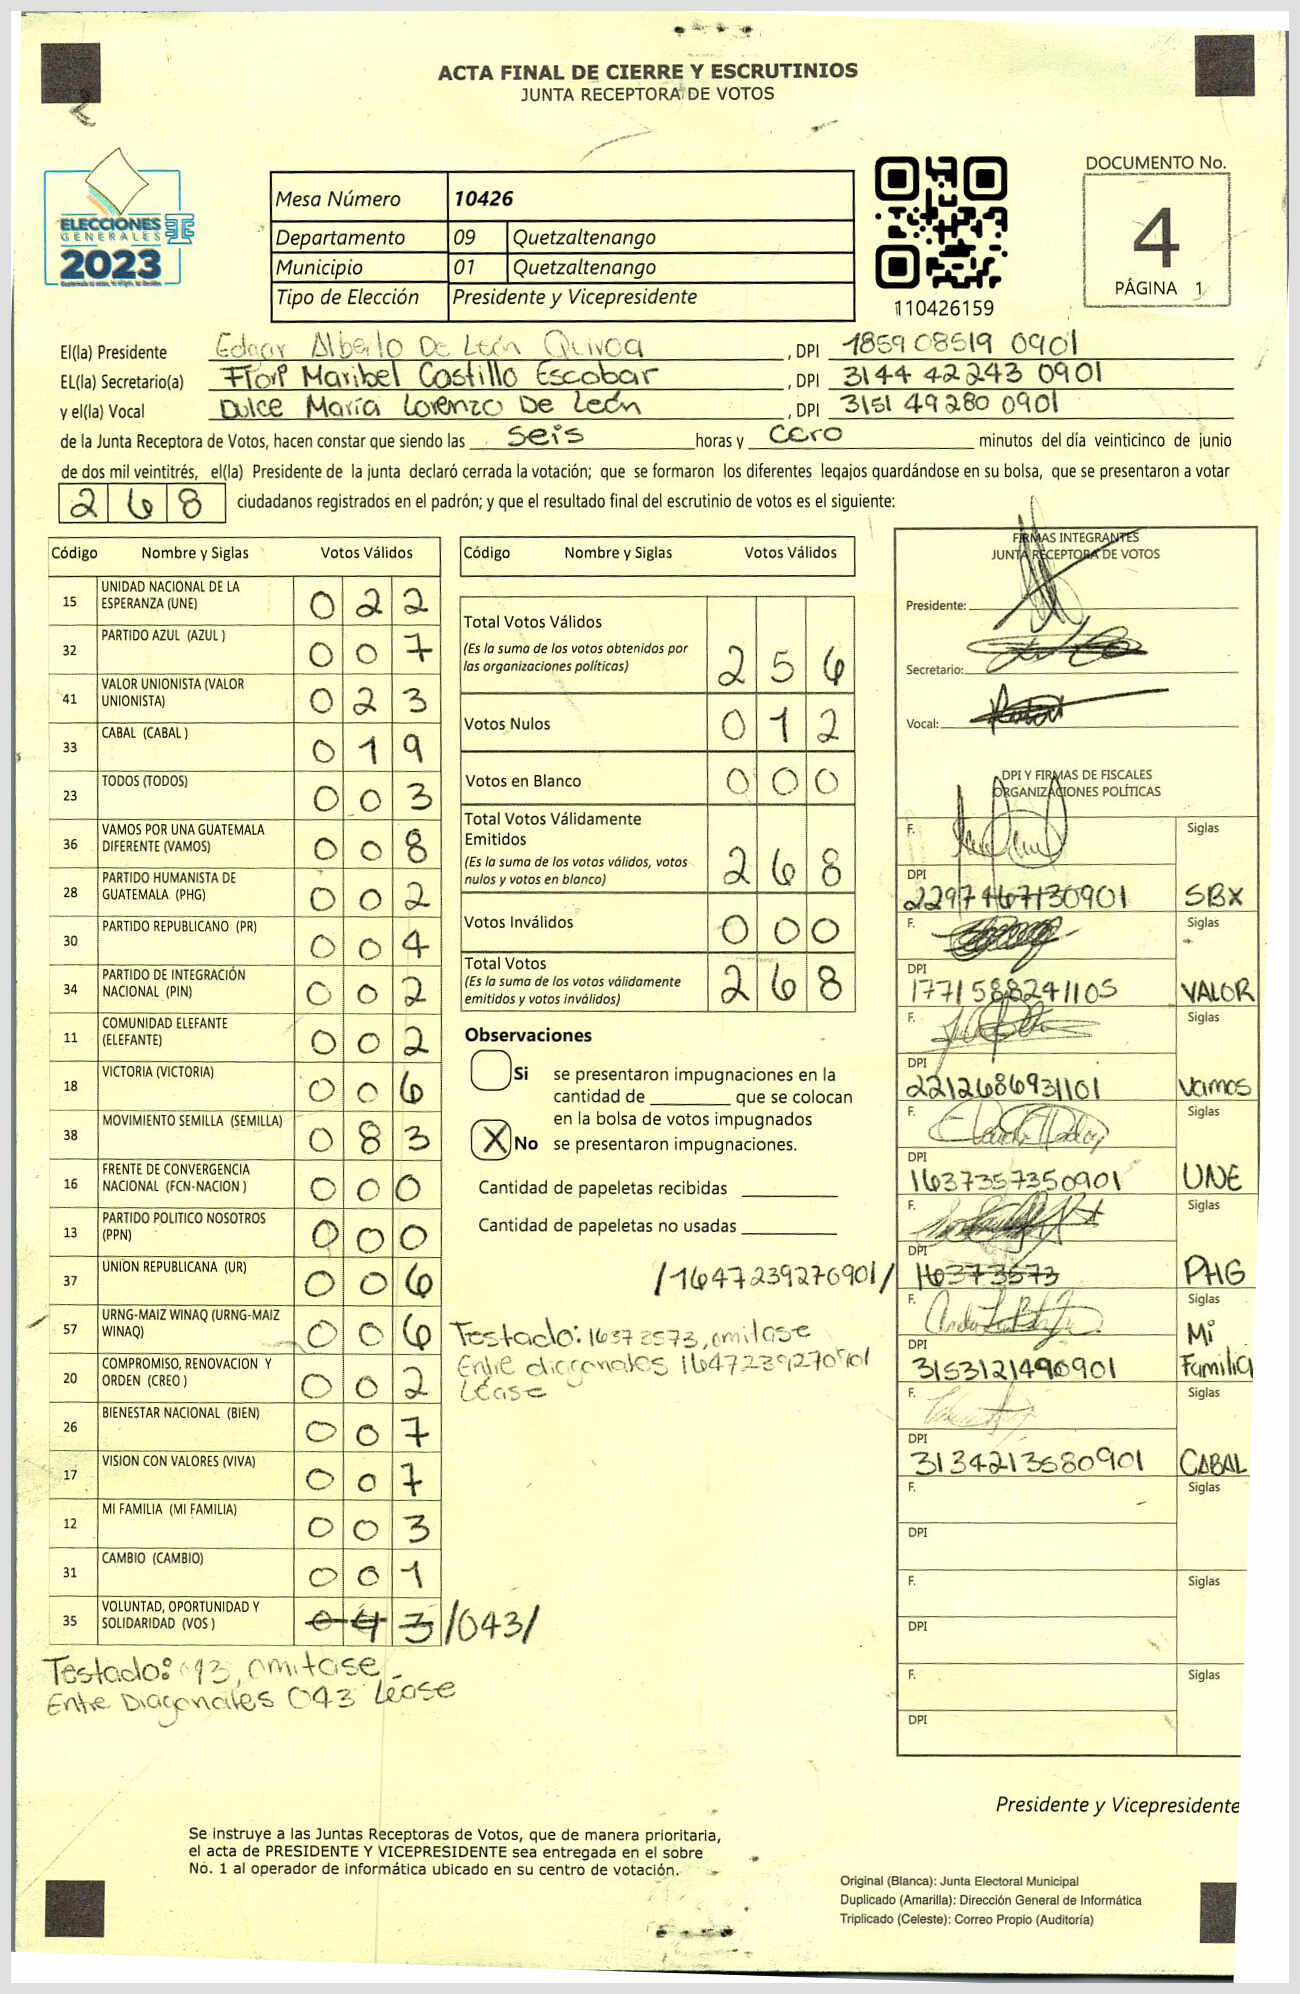 ACTA FINAL DE CIERRE Y ESCRUTINIOS
JUNTA RECEPTORA DE VOTOS
2
ELECCIONES
GENERALES
2023
Mesa Número 10426
Departamento 09 Quetzaltenango
Municipio 01 Quetzaltenango
Tipo de Elección Presidente y Vicepresidente
110426159
DOCUMENTO No.
4
PÁGINA 1
El(la) Presidente Edgar Alberto De León Quiroa, DPI 1859 08519 0901
EL(la) Secretario(a) Flory Maribel Castillo Escobar, DPI 3144 42243 0901
y el(la) Vocal Dulce María Lorenzo De León, DPI 3151 49280 0901
de la Junta Receptora de Votos, hacen constar que siendo las seis horas y cero minutos del día veinticinco de junio
de dos mil veintitrés, el(la) Presidente de la junta declaró cerrada la votación; que se formaron los diferentes legajos guardándose en su bolsa, que se presentaron a votar
268 ciudadanos registrados en el padrón; y que el resultado final del escrutinio de votos es el siguiente:
Código Nombre y Siglas Votos Válidos
15 UNIDAD NACIONAL DE LA ESPERANZA (UNE) 022
32 PARTIDO AZUL (AZUL ) 007
41 VALOR UNIONISTA (VALOR UNIONISTA) 023
33 CABAL (CABAL ) 019
23 TODOS (TODOS) 003
36 VAMOS POR UNA GUATEMALA DIFERENTE (VAMOS) 008
28 PARTIDO HUMANISTA DE GUATEMALA (PHG) 002
30 PARTIDO REPUBLICANO (PR) 004
34 PARTIDO DE INTEGRACIÓN NACIONAL (PIN) 002
11 COMUNIDAD ELEFANTE (ELEFANTE) 002
18 VICTORIA (VICTORIA) 006
38 MOVIMIENTO SEMILLA (SEMILLA) 083
16 FRENTE DE CONVERGENCIA NACIONAL (FCN-NACION ) 000
13 PARTIDO POLITICO NOSOTROS (PPN) 000
37 UNION REPUBLICANA (UR) 006
57 URNG-MAIZ WINAQ (URNG-MAIZ WINAQ) 006
20 COMPROMISO, RENOVACION Y ORDEN (CREO ) 002
26 BIENESTAR NACIONAL (BIEN) 007
17 VISION CON VALORES (VIVA) 007
12 MI FAMILIA (MI FAMILIA) 003
31 CAMBIO (CAMBIO) 001
35 VOLUNTAD, OPORTUNIDAD Y SOLIDARIDAD (VOS ) 043 /043/
Testado: 043, omitase
Entre Diagonales 043 Léase
Código Nombre y Siglas Votos Válidos
Total Votos Válidos 256
(Es la suma de los votos obtenidos por
las organizaciones políticas)
Votos Nulos 012
Votos en Blanco 000
Total Votos Válidamente
Emitidos 268
(Es la suma de los votos válidos, votos
nulos y votos en blanco)
Votos Inválidos 000
Total Votos 268
(Es la suma de los votos válidamente
emitidos y votos inválidos)
Observaciones
Si se presentaron impugnaciones en la
cantidad de ________ que se colocan
en la bolsa de votos impugnados
X No se presentaron impugnaciones.
Cantidad de papeletas recibidas
Cantidad de papeletas no usadas
/1647239270901/
Testado: 16373573, omitase
Entre diagonales 1647239270901
Léase
FIRMAS INTEGRANTES
JUNTA RECEPTORA DE VOTOS
Presidente:
Secretario:
Vocal:
DPI Y FIRMAS DE FISCALES
ORGANIZACIONES POLÍTICAS
F. Siglas
DPI
2297467130901 SBX
F. Siglas
DPI
1771588241105 VALOR
F. Siglas
DPI
2212686931101 Vamos
F. Siglas
DPI
1637357350901 UNE
F. Siglas
DPI
16373573 PHG
F. Siglas
Mi
DPI
3153121490901 Familia
F. Siglas
DPI
3134213580901 CABAL
F. Siglas
DPI
F. Siglas
DPI
F. Siglas
DPI
Presidente y Vicepresidente
Se instruye a las Juntas Receptoras de Votos, que de manera prioritaria,
el acta de PRESIDENTE Y VICEPRESIDENTE sea entregada en el sobre
No. 1 al operador de informática ubicado en su centro de votación.
Original (Blanca): Junta Electoral Municipal
Duplicado (Amarilla): Dirección General de Informática
Triplicado (Celeste): Correo Propio (Auditoría)